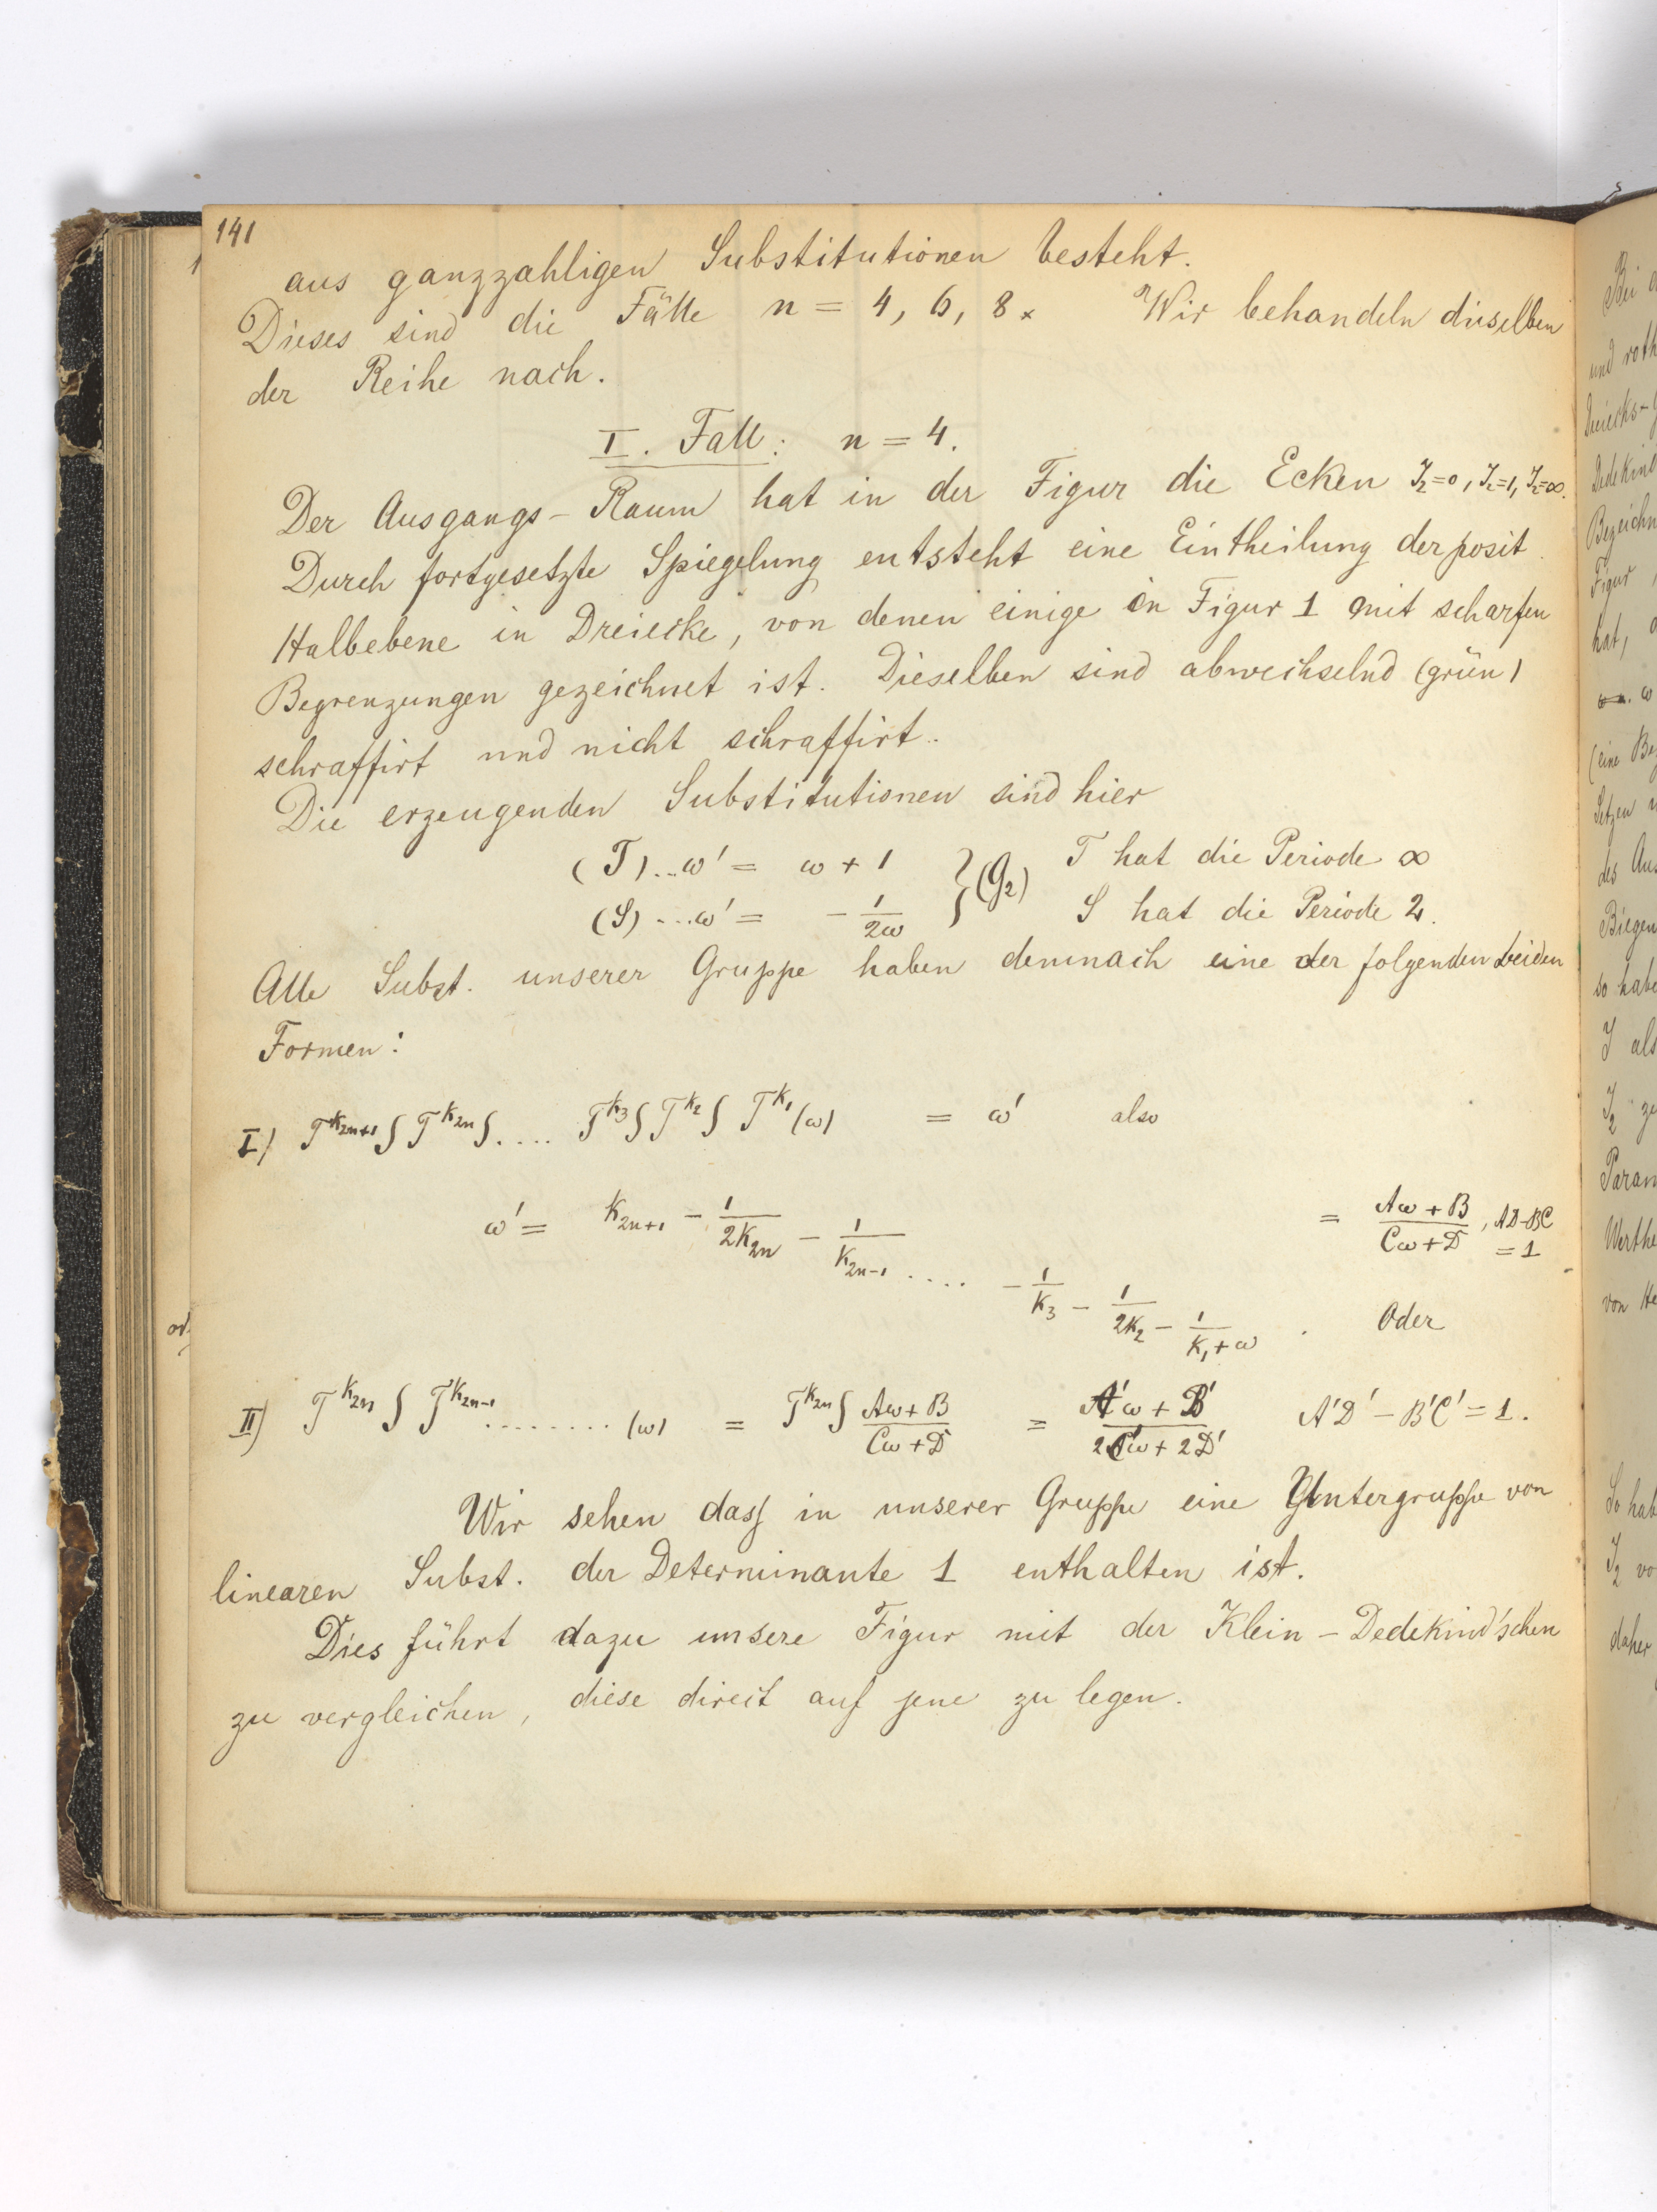 141
aus ganzzahligen Substitutionen besteht.
Dieses sind die Fälle n = 4, 6, 8. Wir behandeln dieselben
der Reihe nach.
I. Fall: n = 4.
Der Ausgangs-Raum hat in der Figur die Ecken J₂=0, J₂=1, J₂=∞.
Durch fortgesetzte Spiegelung entsteht eine Eintheilung der posit.
Halbebene in Dreiecke, von denen einige in Figur 1 mit scharfen
Begrenzungen gezeichnet ist. Dieselben sind abwechselnd (grün)
schraffirt und nicht schraffirt.
Die erzeugenden Substitutionen sind hier
(T)...ω' = ω + 1 } (g₂) T hat die Periode ∞
(S)...ω' = - 1/2ω S hat die Periode 2.
Alle Subst. unserer Gruppe haben demnach eine der folgenden beiden
Formen:
I) T^k₂ₙ₊₁ S T^k₂ₙ S .... T^k₃ S T^k₂ S T^k₁ (ω) = ω' also
ω' = k₂ₙ₊₁ - 1/2k₂ₙ - 1/k₂ₙ₋₁ .... - 1/k₃ - 1/2k₂ - 1/k₁+ω = Aω+B/Cω+D, AD-BC = 1
. Oder
II) T^k₂ₙ S T^k₂ₙ₋₁ ........ (ω) = T^k₂ₙ S Aω+B/Cω+D = A'ω + B'/2C'ω + 2D' A'D' - B'C' = 1.
Wir sehen dass in unserer Gruppe eine Untergruppe von
linearen Subst. der Determinante 1 enthalten ist.
Dies führt dazu unsere Figur mit der Klein-Dedekind'schen
zu vergleichen, diese direct auf jene zu legen.
und roth
Figur
hat,
(eine
Setzen
des
Biegen
so habe
J als
J₂
von
So hab
J₂
daher